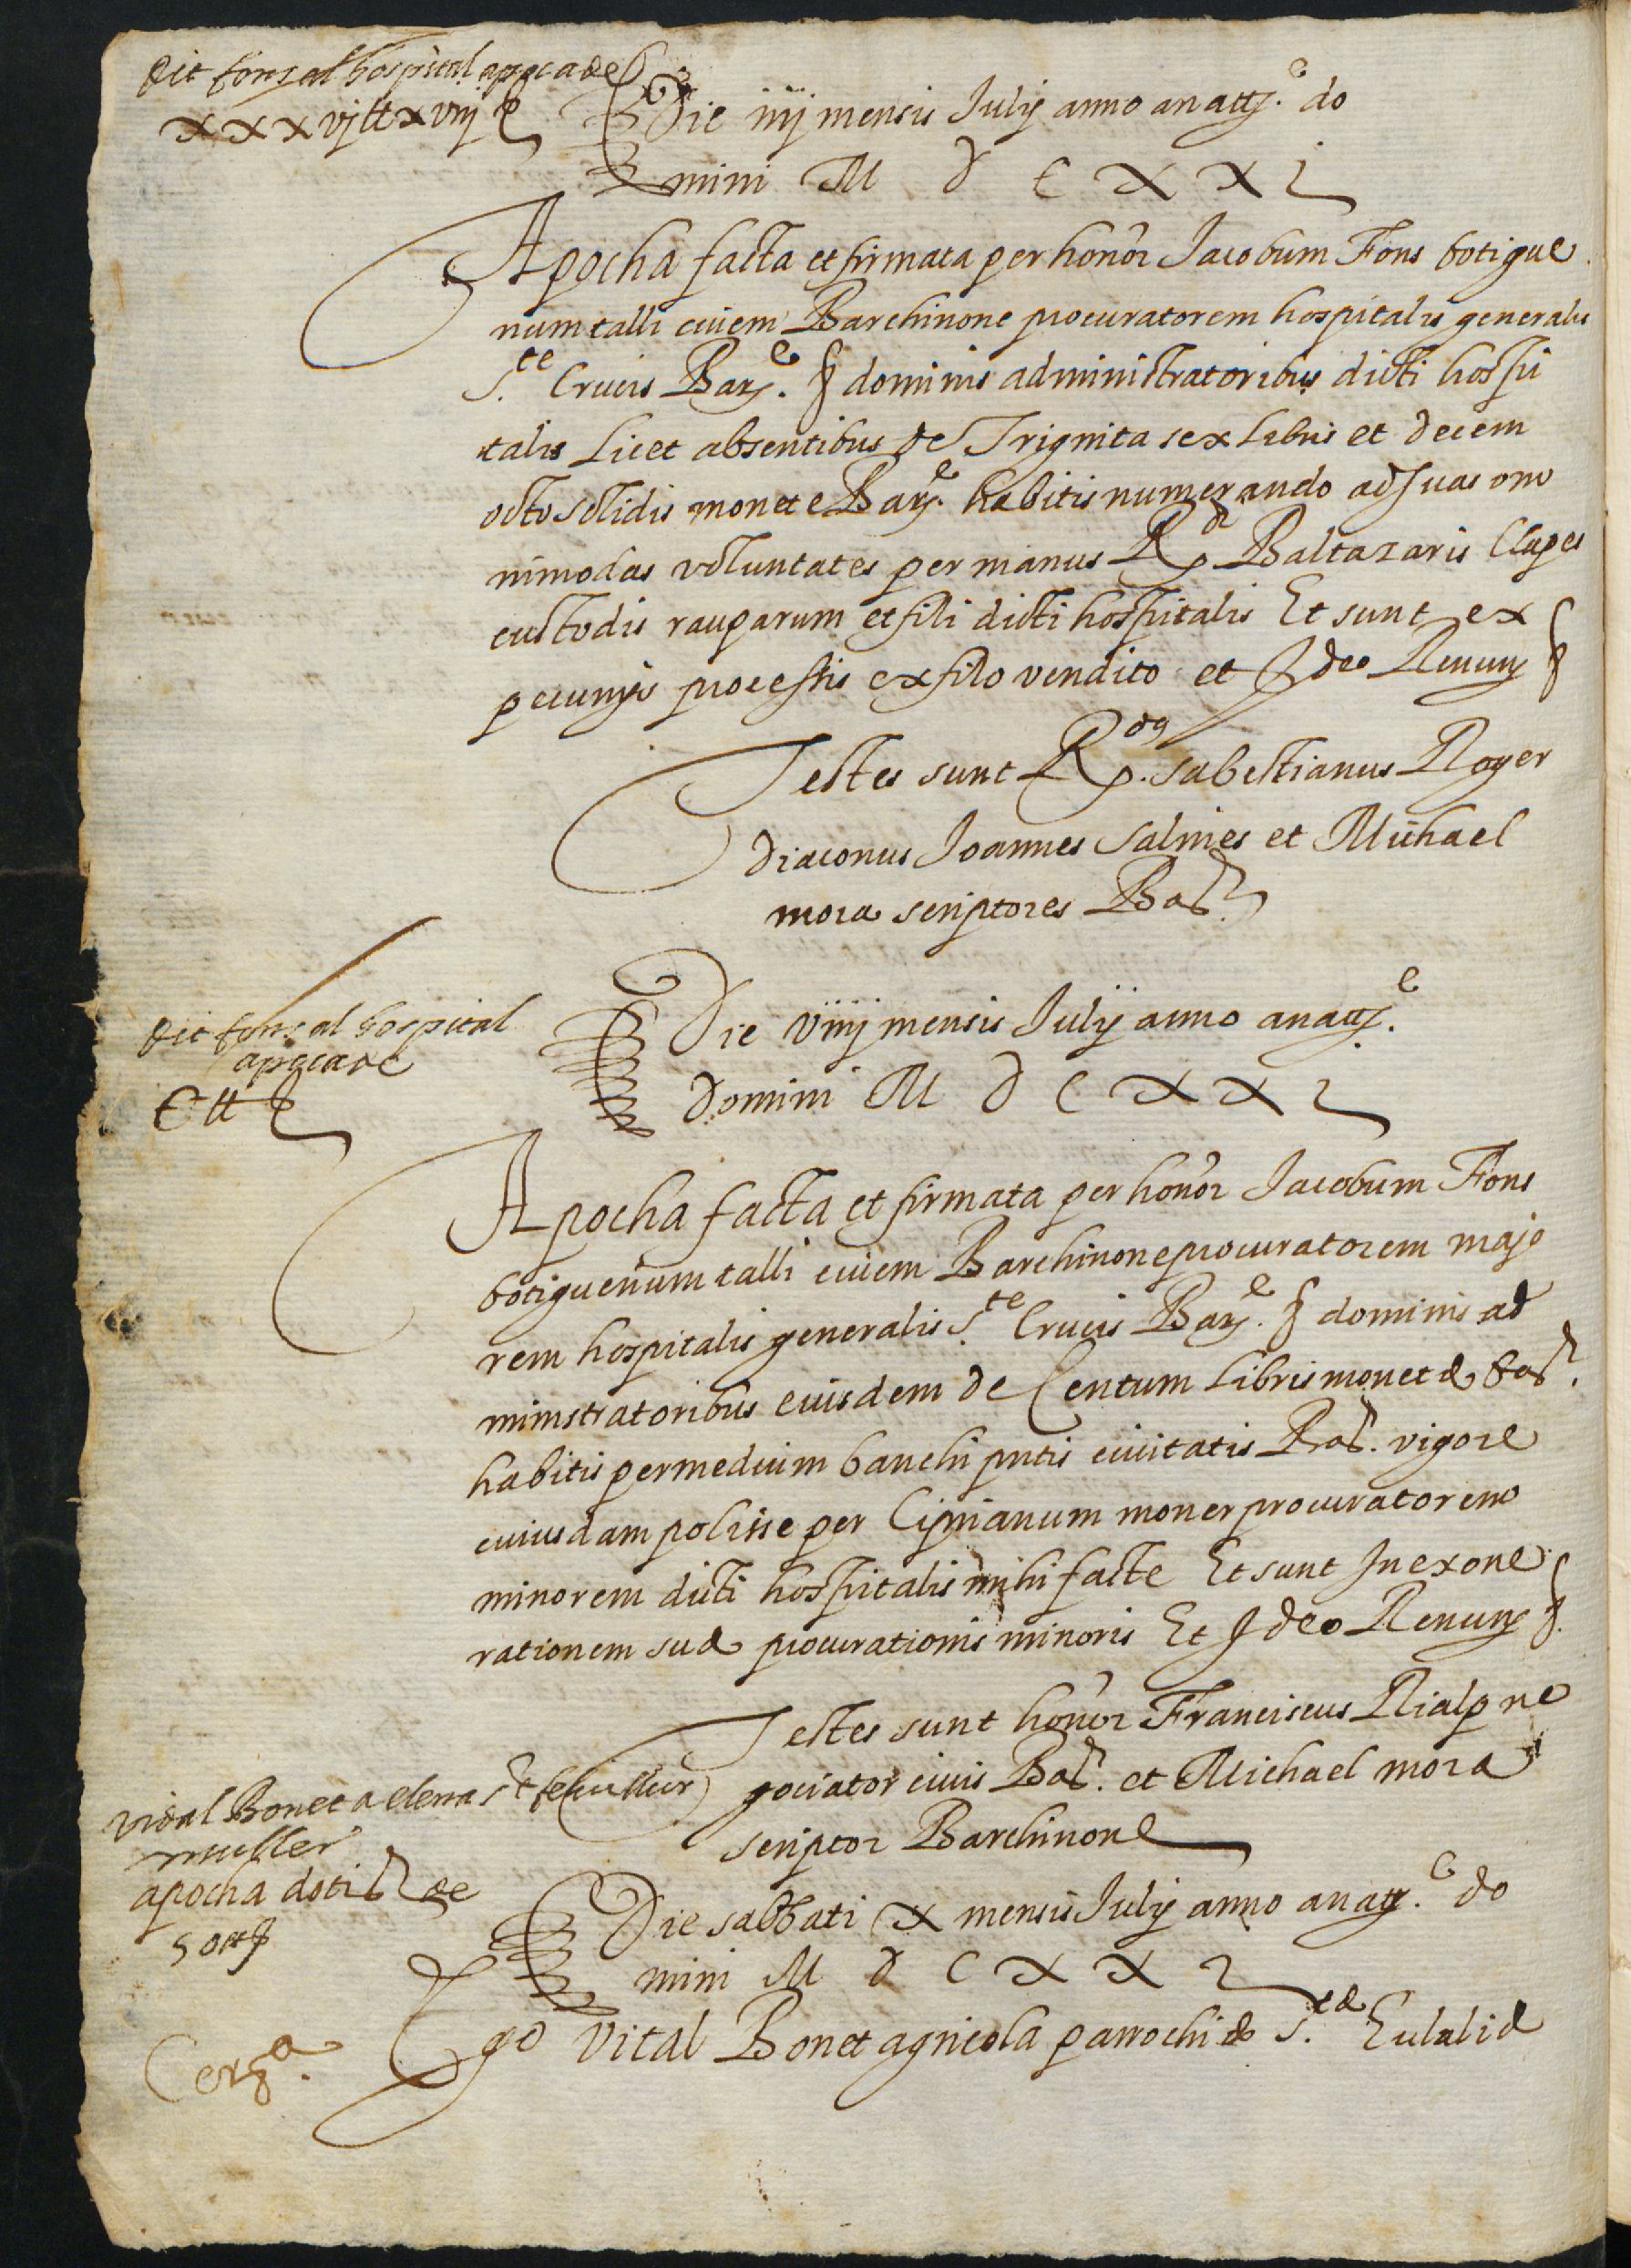 dit fons al hospital apoca de
xxxvj ll xviij s
Die iiij mensis Julij anno a natt.e do
mini M D C X X I
Apocha facta et firmata per honor Jacobum Fons botigue
rium talli civem Barchinone procuratorem hospitalis generalis
S.te Crucis Bar.e dominis administratoribus dicti hospi
talis Licet absentibus de Triginta sex Libris et decem
octo solidis monete Bar.e habitis numerando ad suas om
nimodas voluntates per manus R.di Baltazaris Clapes
custodis rauparum et fili dicti hospitalis Et sunt ex
pecunijs processis ex filo vendito et Ideo Renun
Testes sunt R.dus Sabestianus Roger
diaconus Joannes Salines et Michael
mora scriptores Bar
dit fons al hospital
apoca de
C ll
Die viiij mensis Julij anno a natt.e
Domini M D C X X I
Apocha facta et firmata per honor Jacobum Fons
botiguerium talli civem Barchinone procuratorem majo
rem hospitalis generalis S.te Crucis Bar.e dominis ad
ministratoribus eiusdem de Centum Libris monete bar.
habitis per medium banchi pntis civitatis Bar. vigore
cuiusdam polisse per Ciprianum moner procuratorem
minorem dicti hospitalis mihi facte Et sunt In exone
rationem sue procurationis minoris Et Ideo Renun
Testes sunt honor Franciscus Rialp ne
gociator civis Bar. et Michael mora
scriptor Barchinone
vidal Bonet a elena
muller
apocha dotis de
50 ll
Die sabbati x mensis Julij anno a nat.e do
mini M D C X X I
Cerq.a
Ego Vital Bonet agricola parrochie S.te Eulalie